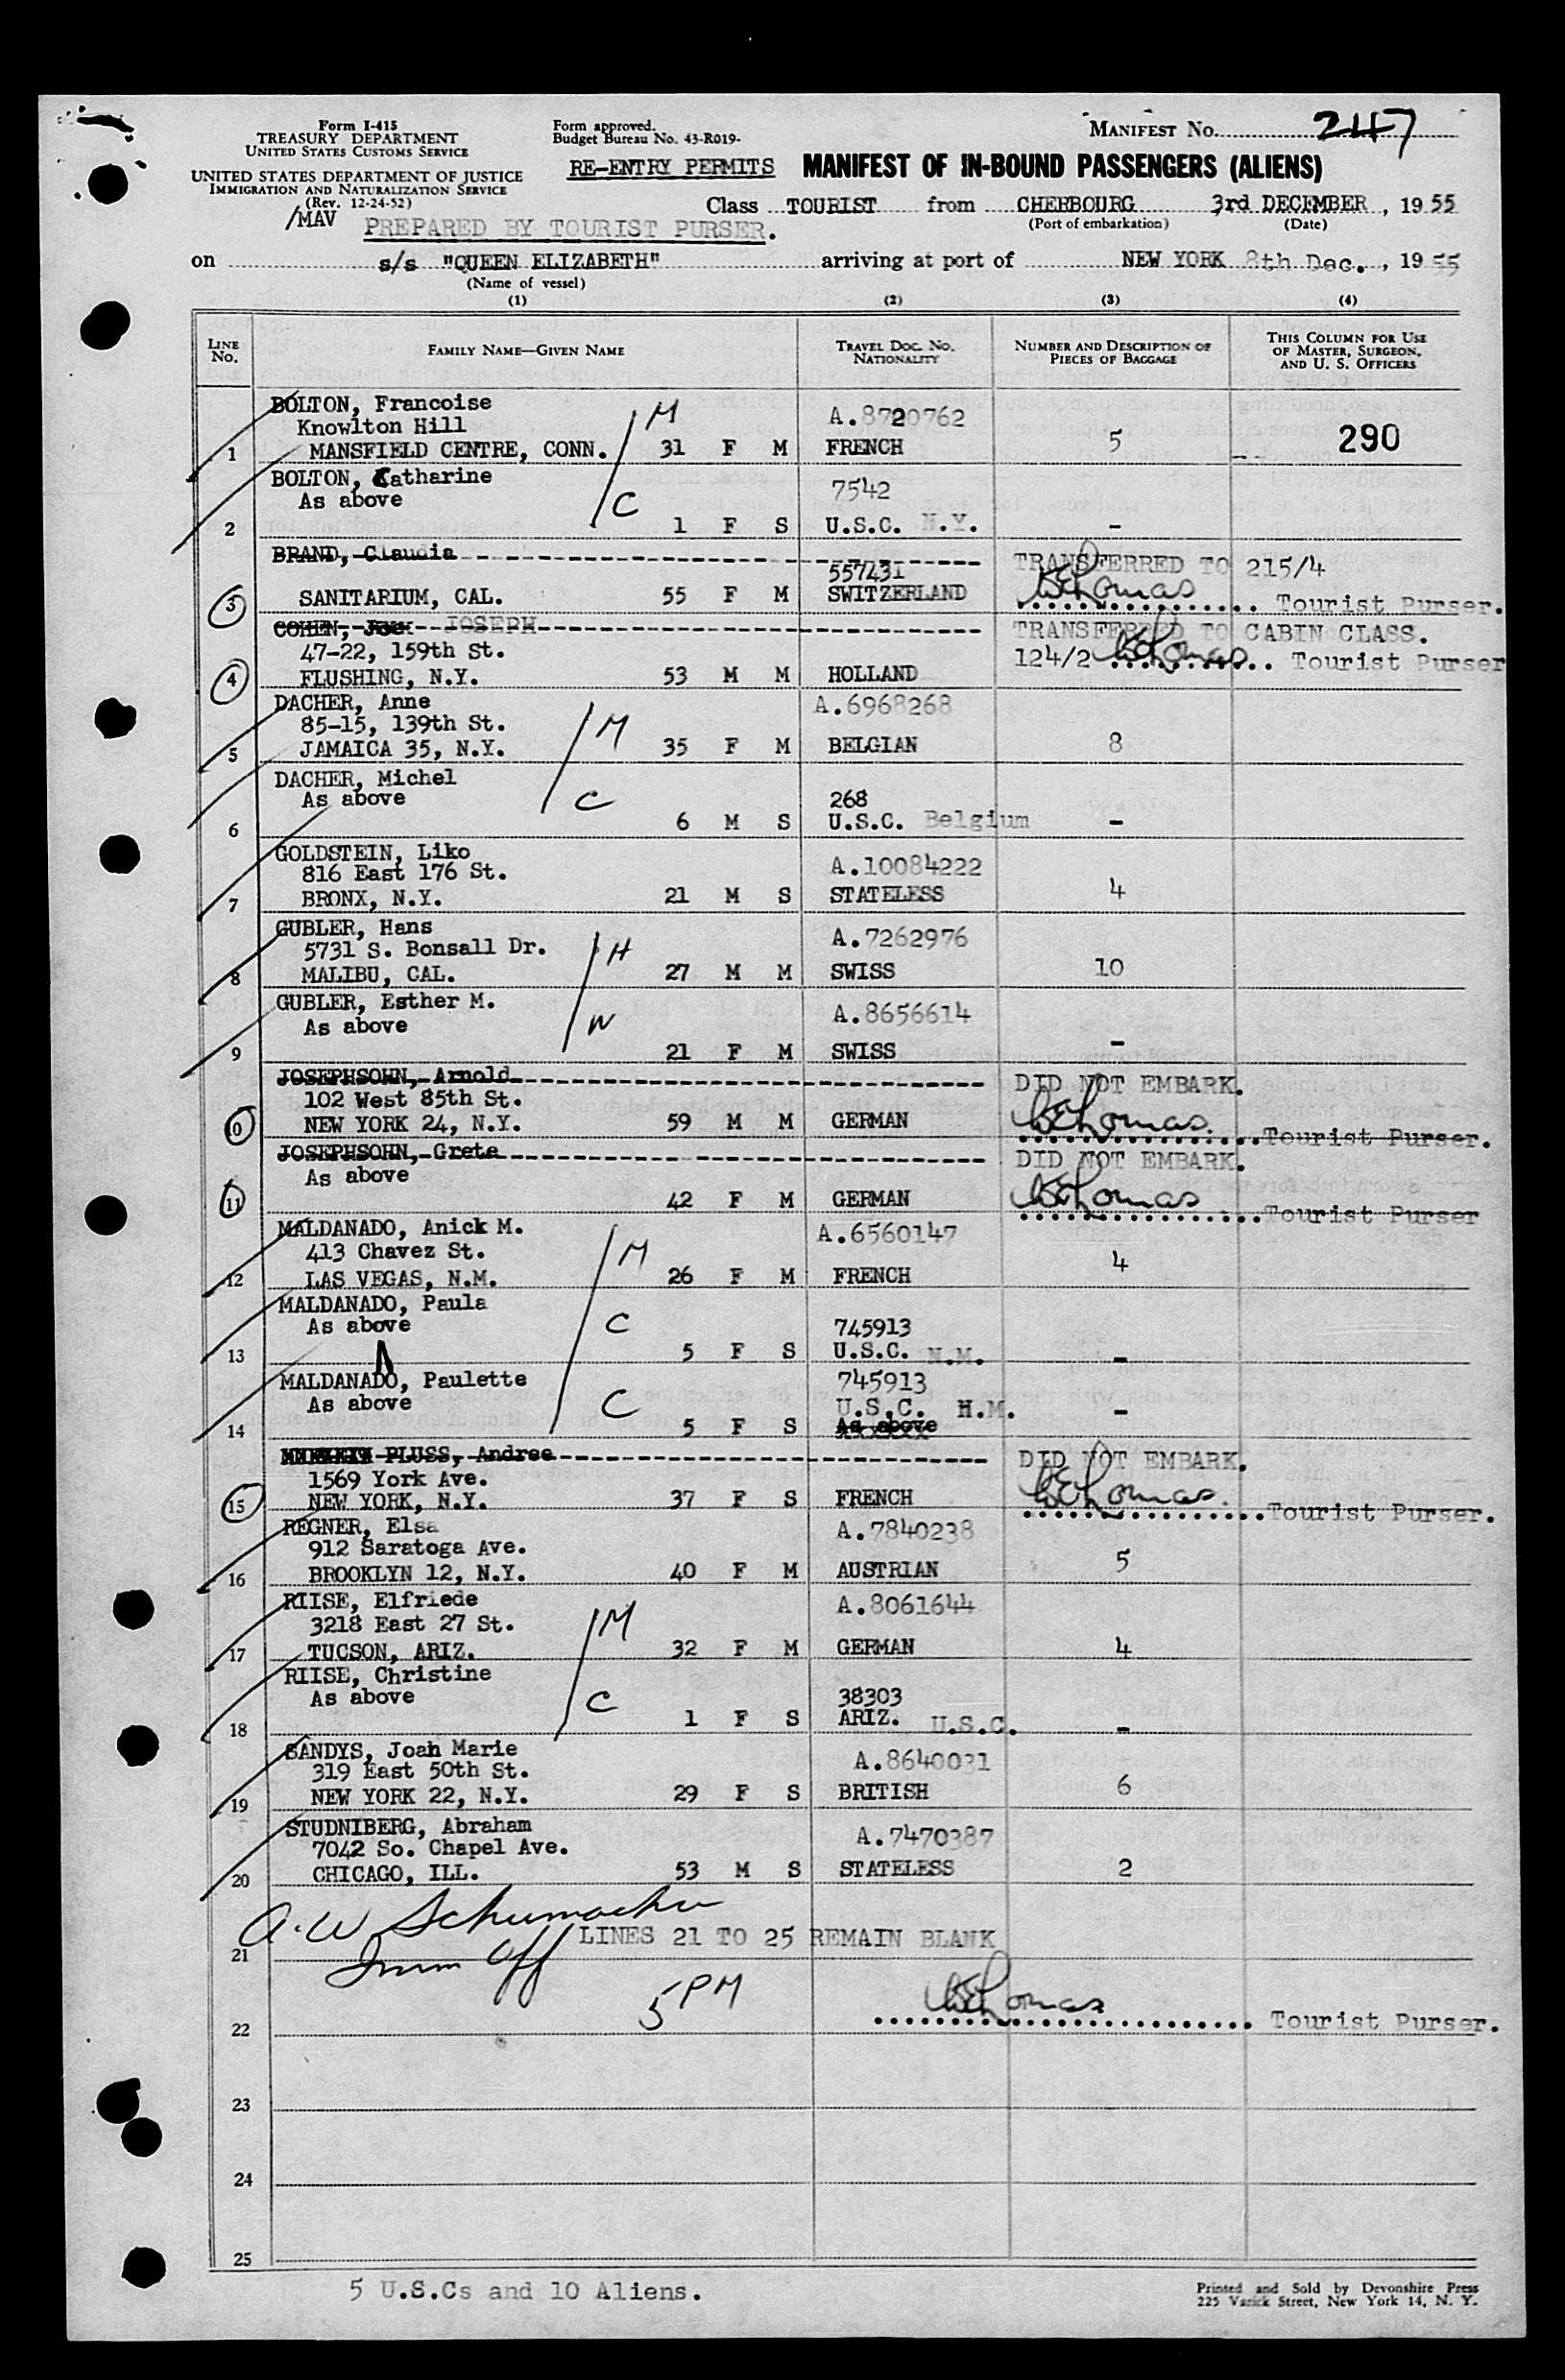 Form I-415
TREASURY DEPARTMENT
UNITED STATES CUSTOMS SERVICE
UNITED STATES DEPARTMENT OF JUSTICE
IMMIGRATION AND NATURALIZATION SERVICE
(Rev. 12-24-52)
/MAV
Form approved.
Budget Bureau No. 43-R019-
MANIFEST No. 247
RE-ENTRY PERMITS MANIFEST OF IN-BOUND PASSENGERS (ALIENS)
Class TOURIST from CHERBOURG 3rd DECEMBER, 1955
(Port of embarkation) (Date)
PREPARED BY TOURIST PURSER.
on s/s "QUEEN ELIZABETH" arriving at port of NEW YORK 8th Dec., 1955
(Name of vessel)
(1) (2) (3) (4)
LINE No. FAMILY NAME—GIVEN NAME TRAVEL DOC. No. NATIONALITY NUMBER AND DESCRIPTION OF PIECES OF BAGGAGE THIS COLUMN FOR USE OF MASTER, SURGEON, AND U. S. OFFICERS
BOLTON, Francoise M A.8720762
Knowlton Hill
1 MANSFIELD CENTRE, CONN. 31 F M FRENCH 5 290
BOLTON, Catharine 7542
As above C
2 1 F S U.S.C. N.Y. -
BRAND, Claudia 557431 TRANSFERRED TO 215/4
3 SANITARIUM, CAL. 55 F M SWITZERLAND Thomas Tourist Purser.
COHEN, JOSEPH TRANSFERRED TO CABIN CLASS.
47-22, 159th St. 124/2 Thomas Tourist Purser
4 FLUSHING, N.Y. 53 M M HOLLAND
DACHER, Anne A.6968268
85-15, 139th St. M
5 JAMAICA 35, N.Y. 35 F M BELGIAN 8
DACHER, Michel
As above C 268
6 6 M S U.S.C. Belgium -
GOLDSTEIN, Liko A.10084222
816 East 176 St.
7 BRONX, N.Y. 21 M S STATELESS 4
GUBLER, Hans A.7262976
5731 S. Bonsall Dr. H
8 MALIBU, CAL. 27 M M SWISS 10
GUBLER, Esther M. A.8656614
As above W
9 21 F M SWISS -
JOSEPHSOHN, Arnold DID NOT EMBARK.
102 West 85th St.
10 NEW YORK 24, N.Y. 59 M M GERMAN Thomas Tourist Purser.
JOSEPHSOHN, Grete DID NOT EMBARK.
As above
11 42 F M GERMAN Thomas Tourist Purser
MALDANADO, Anick M. A.6560147
413 Chavez St. M
12 LAS VEGAS, N.M. 26 F M FRENCH 4
MALDANADO, Paula
As above C 745913
13 5 F S U.S.C. N.M. -
MALDANADO, Paulette 745913
As above C U.S.C. H.M.
14 5 F S As above -
PLUSS, Andree DID NOT EMBARK.
1569 York Ave.
15 NEW YORK, N.Y. 37 F S FRENCH Thomas Tourist Purser.
REGNER, Elsa A.7840238
912 Saratoga Ave.
16 BROOKLYN 12, N.Y. 40 F M AUSTRIAN 5
RIISE, Elfriede A.8061644
3218 East 27 St. M
17 TUCSON, ARIZ. 32 F M GERMAN 4
RIISE, Christine
As above C 38303
18 1 F S ARIZ. U.S.C. -
SANDYS, Joan Marie A.8640031
319 East 50th St.
19 NEW YORK 22, N.Y. 29 F S BRITISH 6
STUDNIBERG, Abraham A.7470387
7042 So. Chapel Ave.
20 CHICAGO, ILL. 53 M S STATELESS 2
A.W. Schumacher
21 LINES 21 TO 25 REMAIN BLANK
Imm Off
5 PM Thomas
22 Tourist Purser.
23
24
25
5 U.S.Cs and 10 Aliens.
Printed and Sold by Devonshire Press
225 Varick Street, New York 14, N. Y.